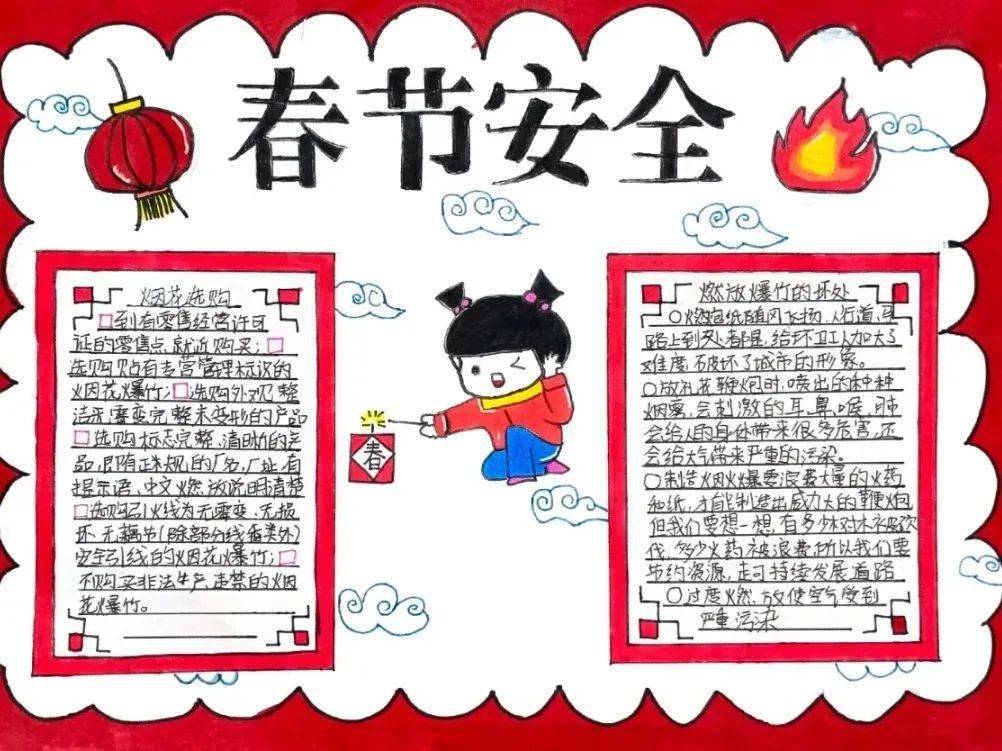 春节安全
烟花选购
□到有零售经营许可
证的零售点就近购买;□
选购贴有专营管理标识的
烟花爆竹;□选购外观整
洁无霉变完整未变形的产品
□选购标志完整、清晰的产
品,即有正规的厂名、厂址,有
提示语、中文燃放说明清楚
□选购引火线为无霉变、无损
坏、无藕节(除部分线香类外)
安全引线的烟花爆竹;□
不购买非法生产、违禁的烟
花爆竹。
春
燃放爆竹的坏处
○燃炮纸随风飞扬,人行道,马
路上到处都是,给环卫工人加大了
难度,破坏了城市的形象。
○放礼花鞭炮时,喷出的种种
烟雾,会刺激的耳、鼻、喉、肺
会给人的身体带来很多危害,还
会给大气带来严重的污染。
○制造烟火爆要浪费大量的火药
和纸,才能制造出威力大的鞭炮
但我们要想一想,有多少树木被砍
伐,多少火药被浪费,所以我们要
节约资源,走可持续发展道路
○过度燃放使空气受到
严重污染